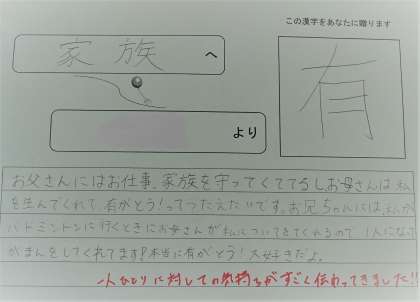 この漢字をあなたに贈ります
家族 へ
有
より
お父さんにはお仕事、家族を守ってくててるし、お母さんは私
を生んでくれて、有がとう!ってつたえたいです。お兄ちゃんには、私が
バドミントンに行くときにお母さんが私についてきてくれるので1人になって
がまんをしてくれてます!本当に有がとう!大好きだよ。
一人ひとりに対しての気持ちがすごく伝わってきました!!